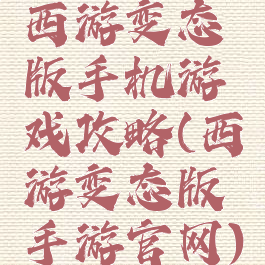 西游变态
版手机游
戏攻略(西
游变态版
手游官网)